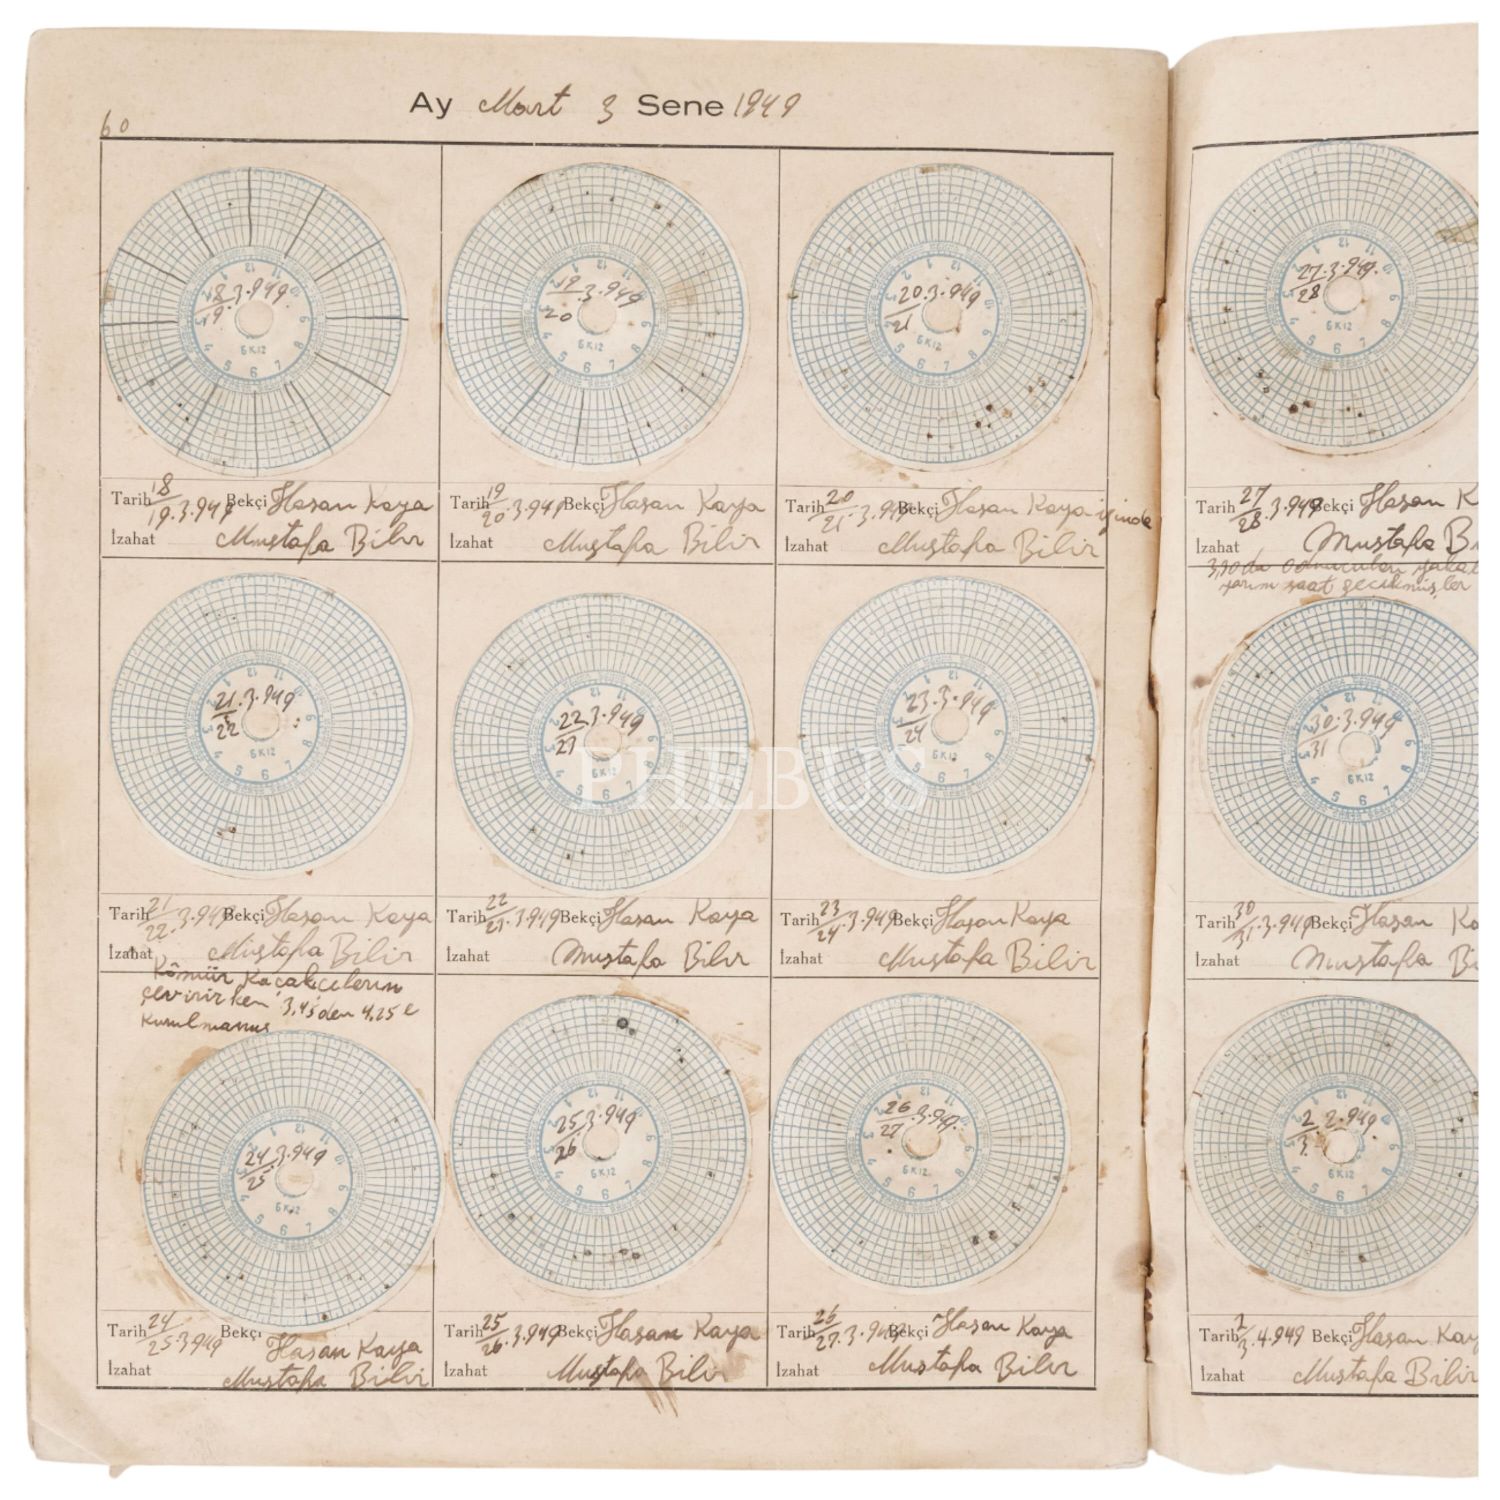 60
Ay Mart 3 Sene 1949
18/19.3.949.
6K12
19/20.3.949
6K12
20/21.3.949
6K12
Tarih 18/19.3.949 Bekçi Hasan Kaya
İzahat Mustafa Bilir
Tarih 19/20.3.949 Bekçi Hasan Kaya
İzahat Mustafa Bilir
Tarih 20/21.3.949 Bekçi Hasan Kaya içinde
İzahat Mustafa Bilir
21/22.3.949
6K12
22/23.3.949
6K12
23/24.3.949
6K12
Tarih 21/22.3.949 Bekçi Hasan Kaya
İzahat Mustafa Bilir
Kömür Kaçakcıların
çevirirken 3,45'den 4.25 e
kurulmamış
Tarih 22/23.3.949 Bekçi Hasan Kaya
İzahat Mustafa Bilir
Tarih 23/24.3.949 Bekçi Hasan Kaya
İzahat Mustafa Bilir
24/25.3.949
6K12
25/26.3.949
6K12
26/27.3.949.
6K12
Tarih 24/25.3.949 Bekçi Hasan Kaya
İzahat Mustafa Bilir
Tarih 25/26.3.949 Bekçi Hasan Kaya
İzahat Mustafa Bilir
Tarih 26/27.3.949 Bekçi Hasan Kaya
İzahat Mustafa Bilir
27/28.3.949.
Tarih 27/28.3.949 Bekçi Hasan K
İzahat Mustafa B
3,30 da
yarım saat gecikmişler
30/31.3.949
6K12
Tarih 30/31.3.949 Bekçi Hasan Ka
İzahat Mustafa Bi
2/3.2.949.
6K12
Tarih 2/3.4.949 Bekçi Hasan Kay
İzahat Mustafa Bilir
PHEBUS